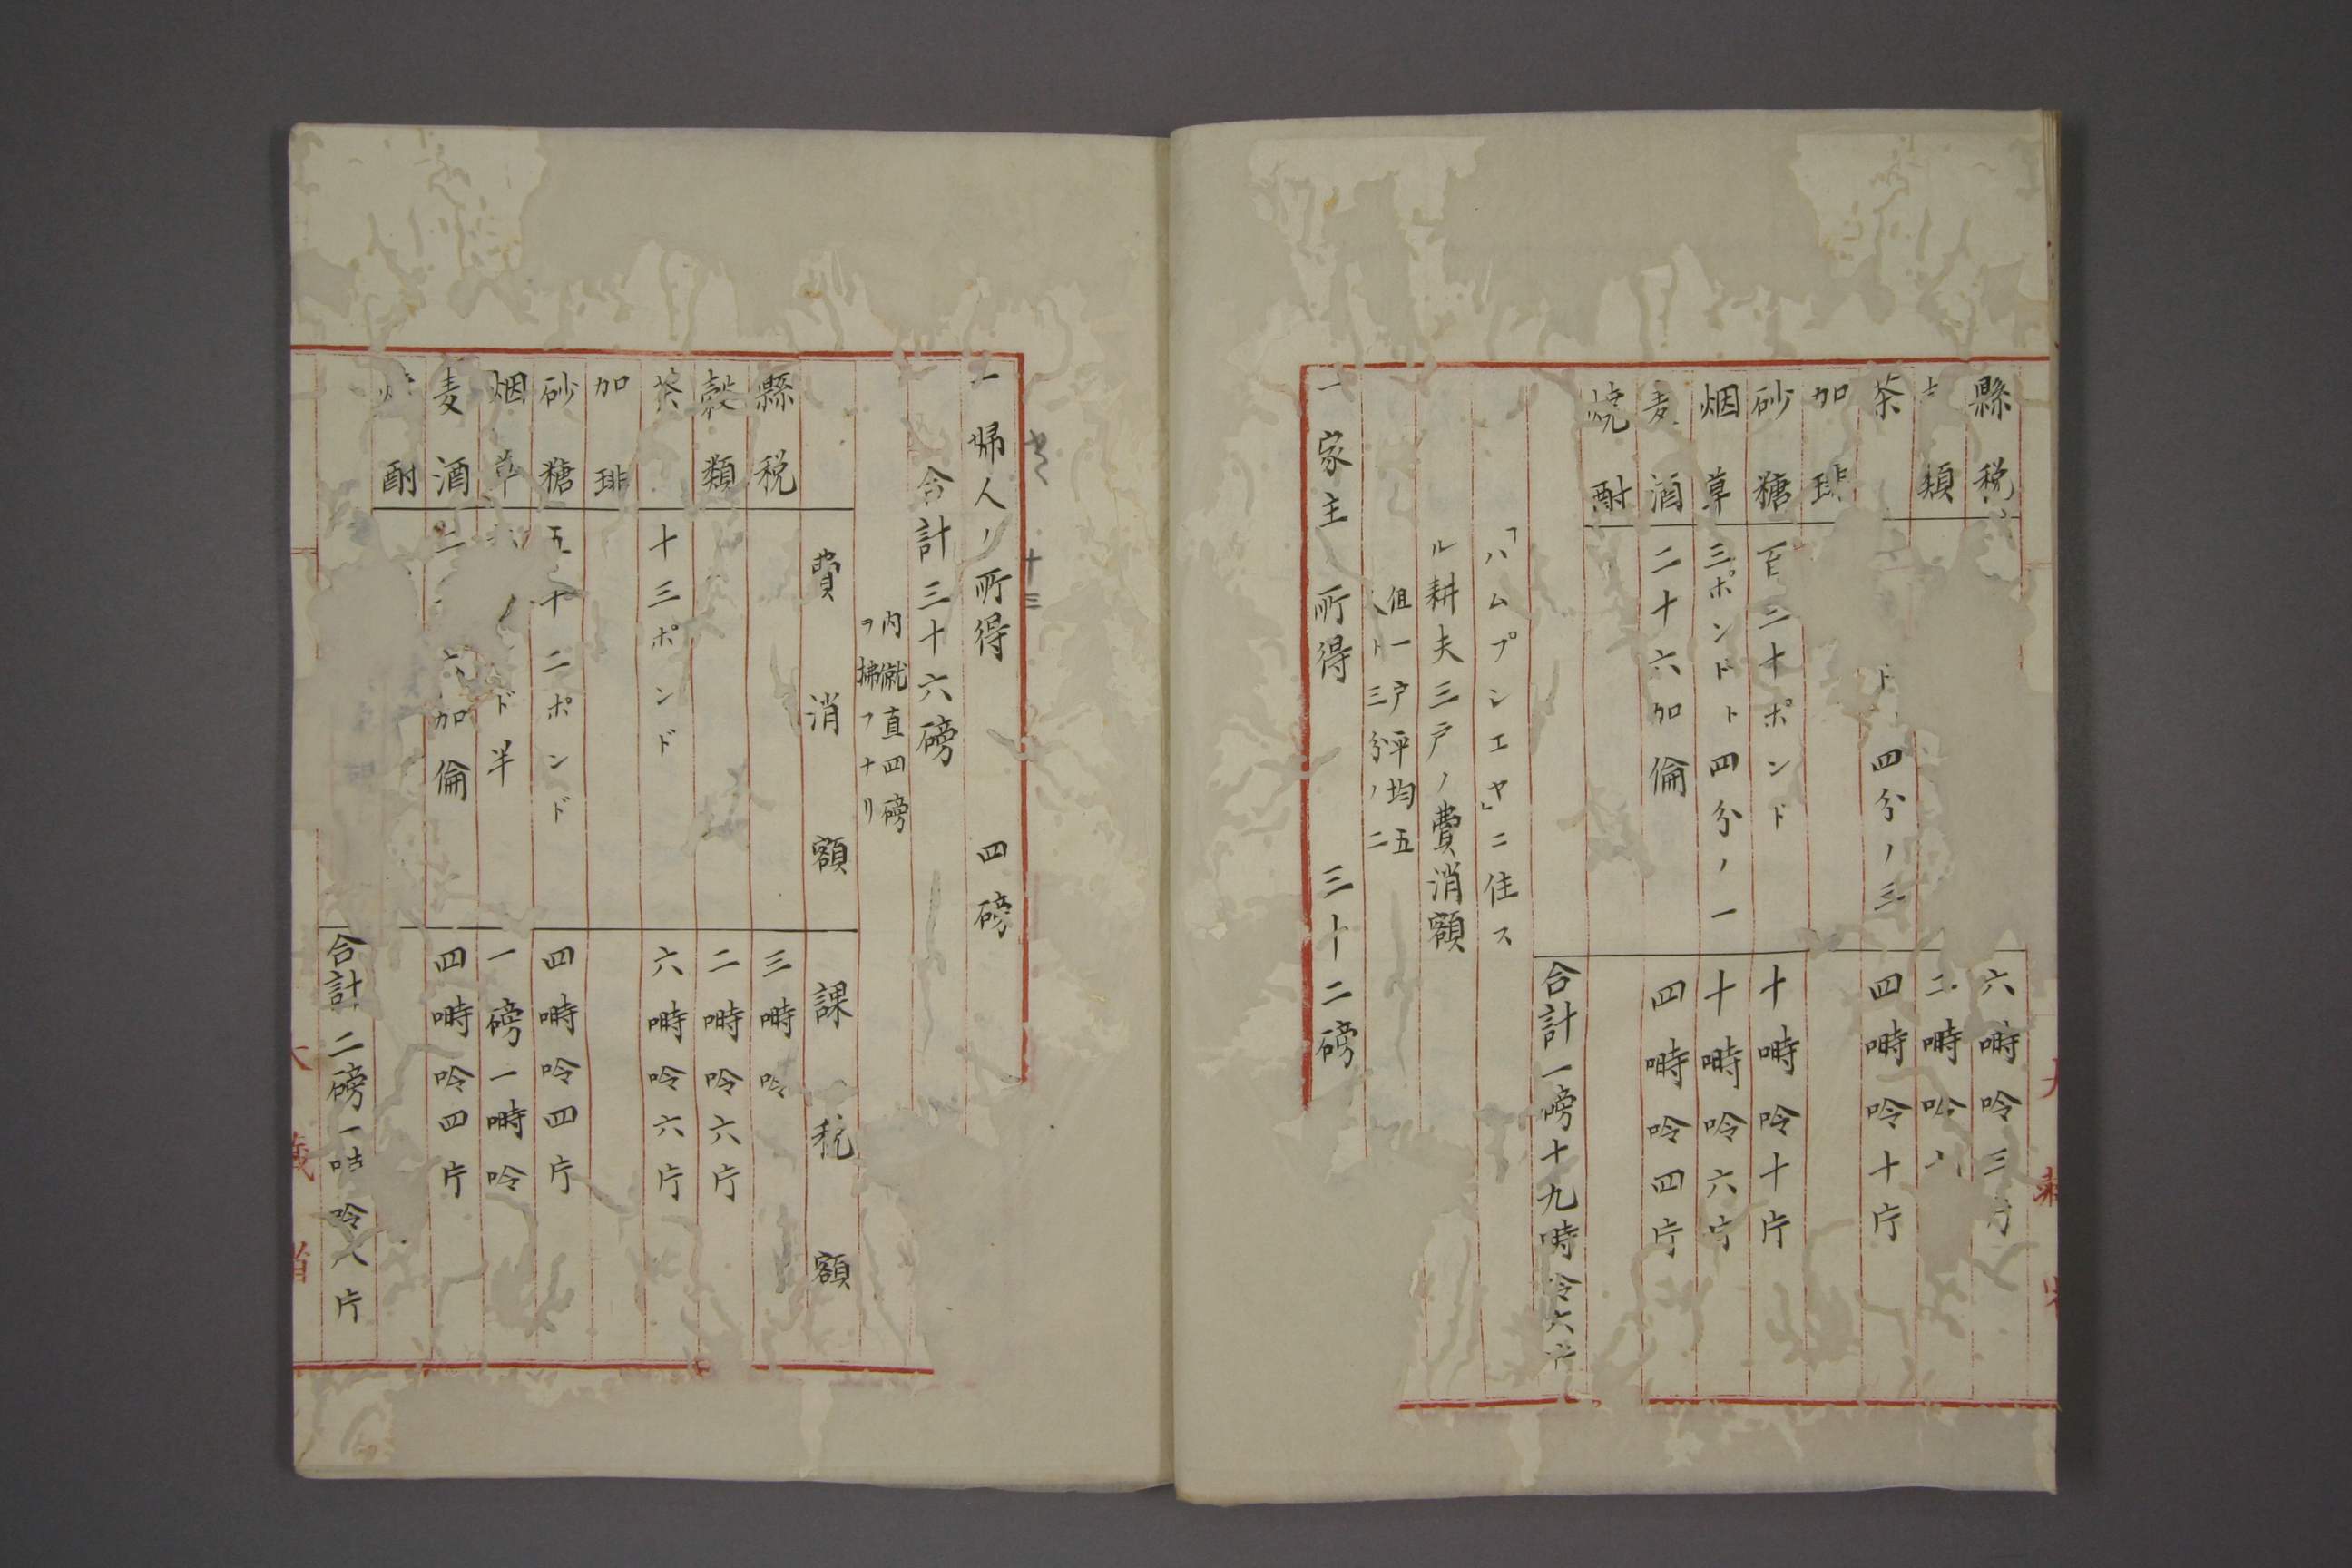 縣税 六啲呤三片
類 二啲呤
茶 ド四分ノ三 四啲呤十片
加琲
砂糖 百二十ポンド 十啲呤十片
烟草 三ポンドト四分ノ一 十啲呤六片
麦酒 二十六加倫 四啲呤四片
焼酎
合計一磅十九啲呤六片
「ハムプシエヤ」ニ住ス
ル耕夫三戸ノ費消額
但一戸平均五
人ト三分ノ二
一家主ノ所得 三十二磅
一婦人ノ所得 四磅
合計三十六磅
内僦直四磅
ヲ拂フナリ
費消額 課税額
縣税 三啲呤
穀類 二啲呤六片
茶 十三ポンド 六啲呤六片
加琲
砂糖 五十二ポンド 四啲呤四片
烟草 ド半 一磅一啲呤
麦酒 二 六加倫 四啲呤四片
焼酎
合計二磅一啲呤八片
大藏省